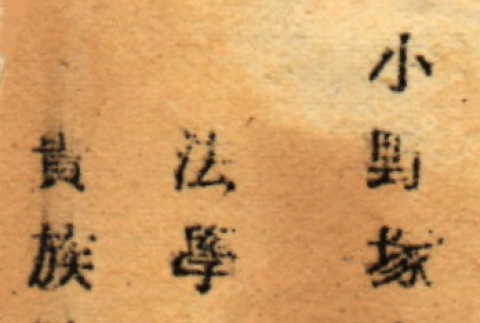 小野塚
法學
貴族